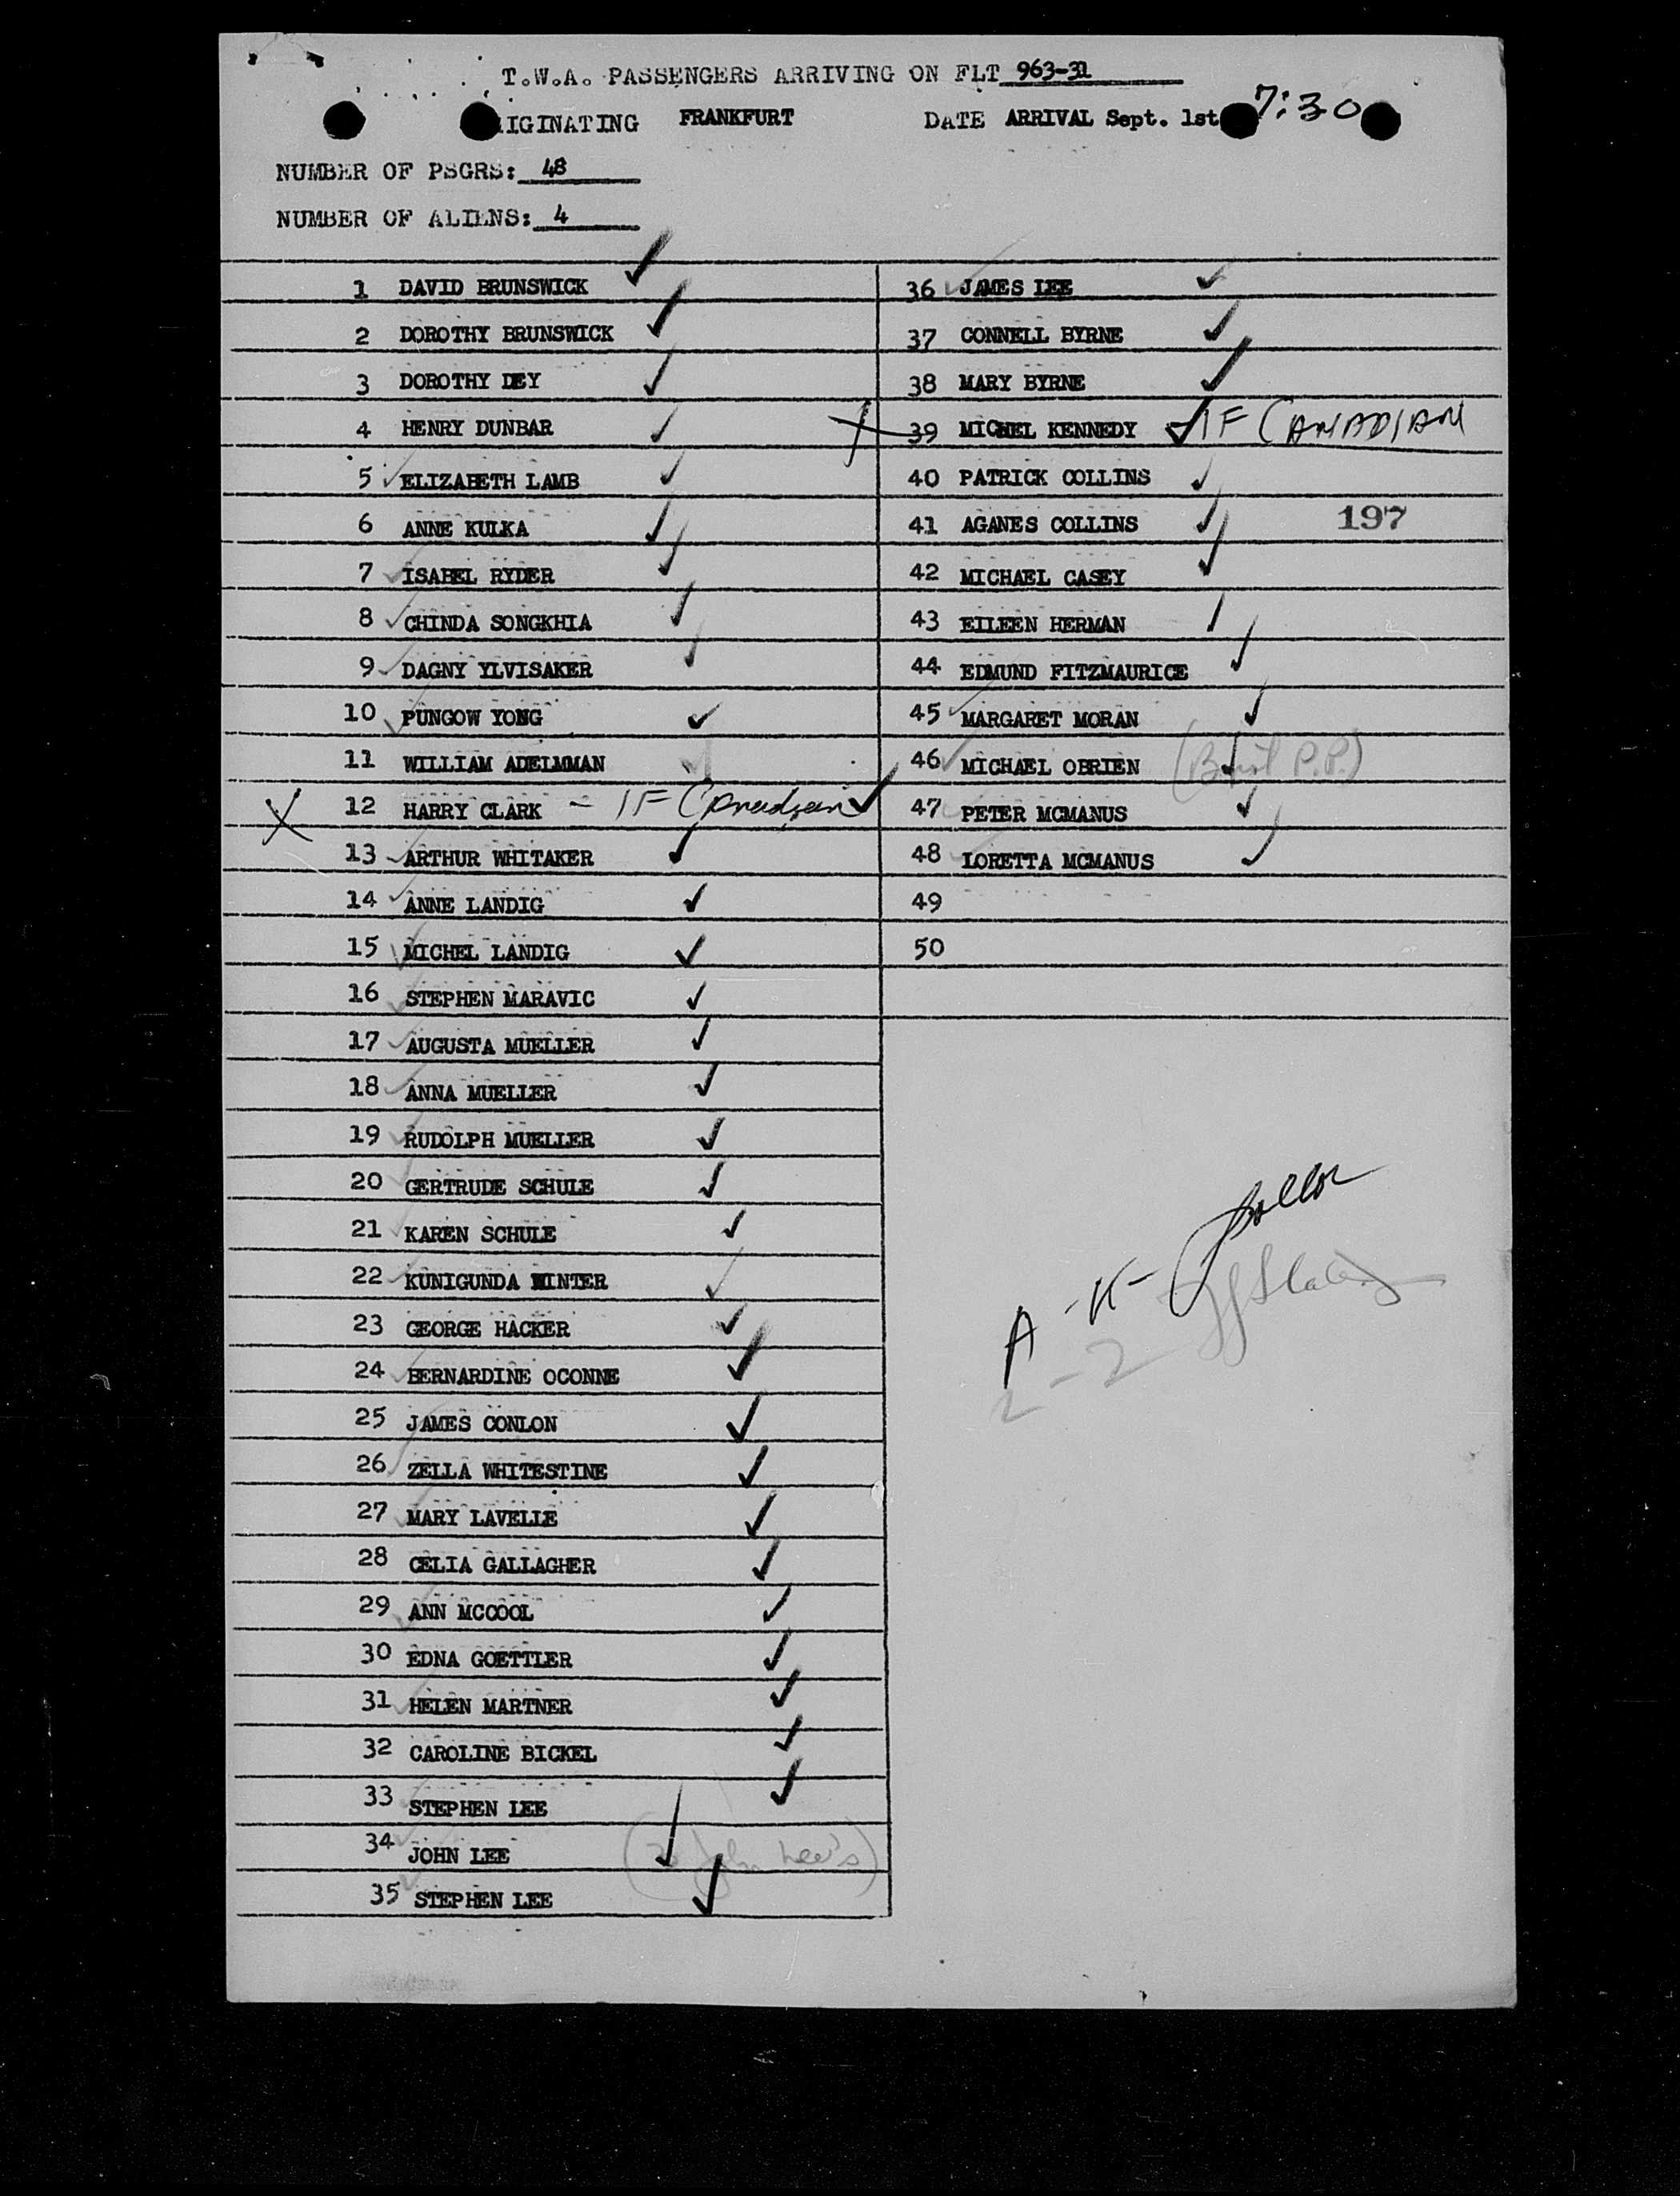 T.W.A. PASSENGERS ARRIVING ON FLT 963-31
IGINATING FRANKFURT DATE ARRIVAL Sept. 1st 7:30
NUMBER OF PSGRS: 48
NUMBER OF ALIENS: 4
1 DAVID BRUNSWICK
2 DOROTHY BRUNSWICK
3 DOROTHY DEY
4 HENRY DUNBAR
5 ELIZABETH LAMB
6 ANNE KULKA
7 ISABEL RYDER
8 CHINDA SONGKHIA
9 DAGNY YLVISAKER
10 PUNGOW YONG
11 WILLIAM ADELMMAN
12 HARRY CLARK - 1F Canadian
13 ARTHUR WHITAKER
14 ANNE LANDIG
15 MICHEL LANDIG
16 STEPHEN MARAVIC
17 AUGUSTA MUELLER
18 ANNA MUELLER
19 RUDOLPH MUELLER
20 GERTRUDE SCHULE
21 KAREN SCHULE
22 KUNIGUNDA WINTER
23 GEORGE HACKER
24 BERNARDINE OCONNE
25 JAMES CONLON
26 ZELLA WHITESTINE
27 MARY LAVELLE
28 CELIA GALLAGHER
29 ANN MCCOOL
30 EDNA GOETTLER
31 HELEN MARTNER
32 CAROLINE BICKEL
33 STEPHEN LEE
34 JOHN LEE (2 John Lee's)
35 STEPHEN LEE
36 JAMES LEE
37 CONNELL BYRNE
38 MARY BYRNE
39 MICHEL KENNEDY 1F CANADIAN
40 PATRICK COLLINS
41 AGANES COLLINS 197
42 MICHAEL CASEY
43 EILEEN HERMAN
44 EDMUND FITZMAURICE
45 MARGARET MORAN
46 MICHAEL OBRIEN (Brit P.P.)
47 PETER MCMANUS
48 LORETTA MCMANUS
49
50
A-K-
2-2